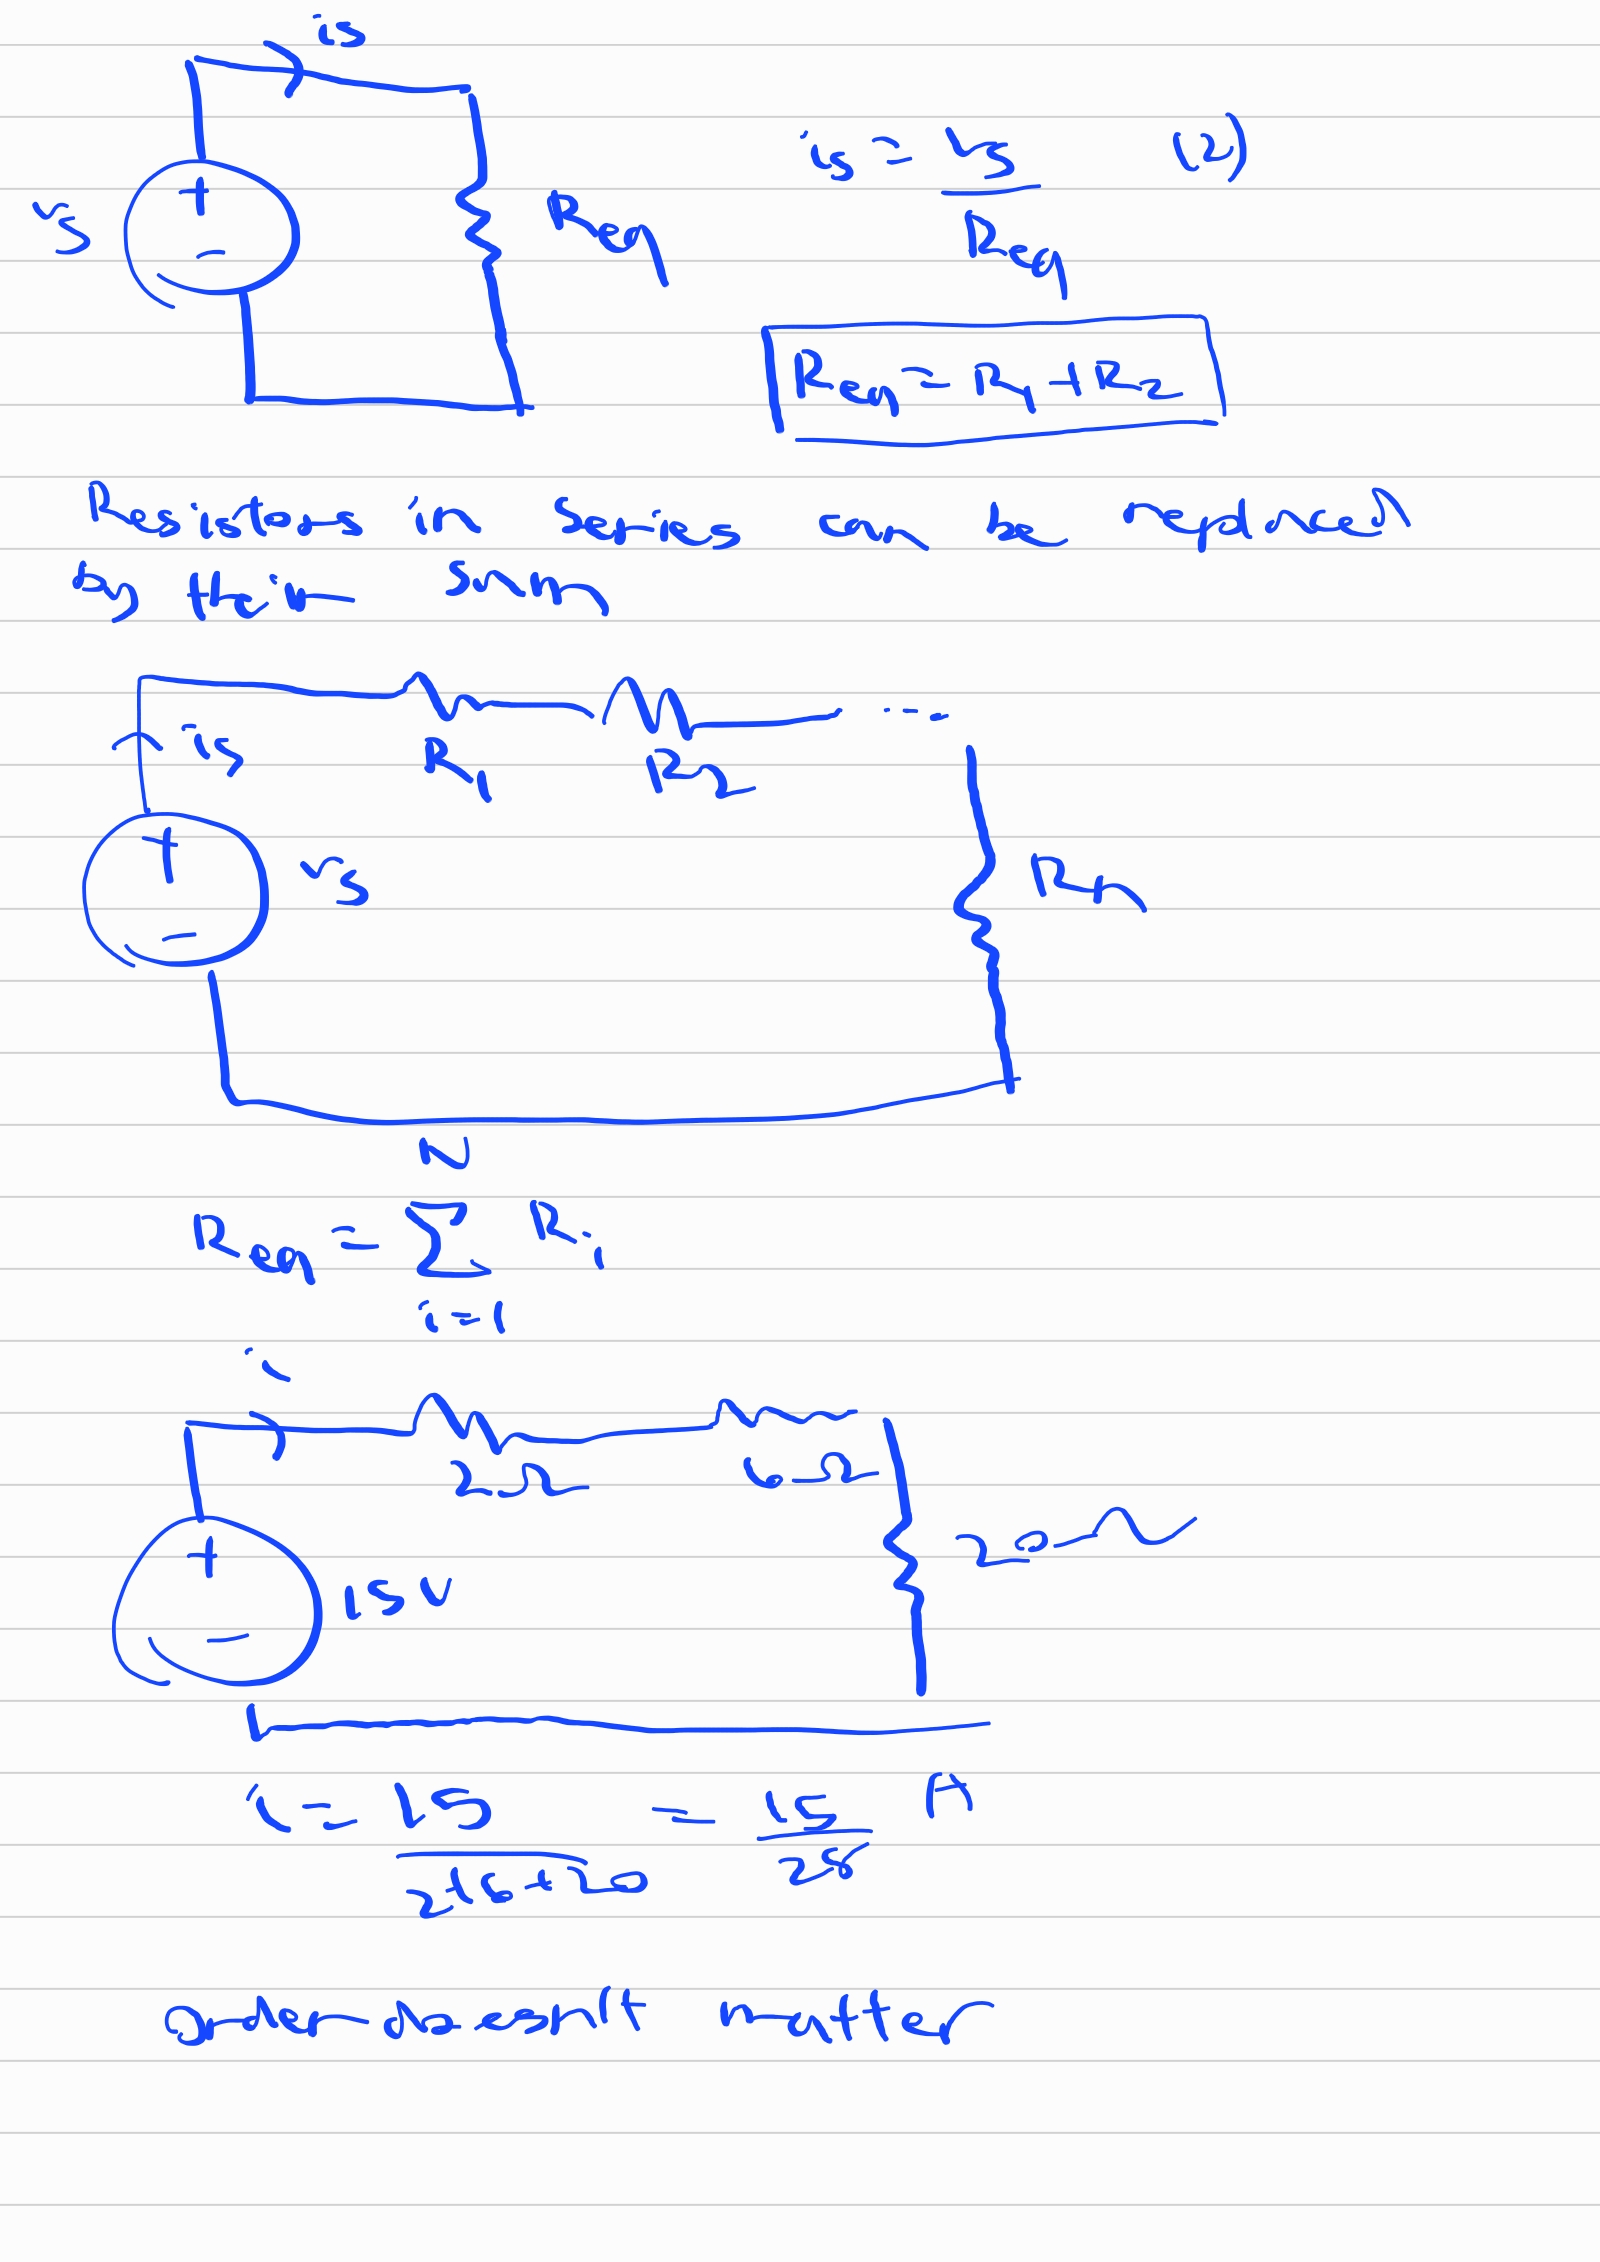 is
vs
+
-
Req
is = vs / Req (2)
Req = R1 + R2
Resistors in series can be replaced
by their sum
is
R1
R2
....
+
-
vs
Rn
N
Req = Σ Ri
i=1
i
2Ω
6Ω
+
-
15V
20Ω
i = 15 / 2+6+20 = 15 / 28 A
order doesn't matter